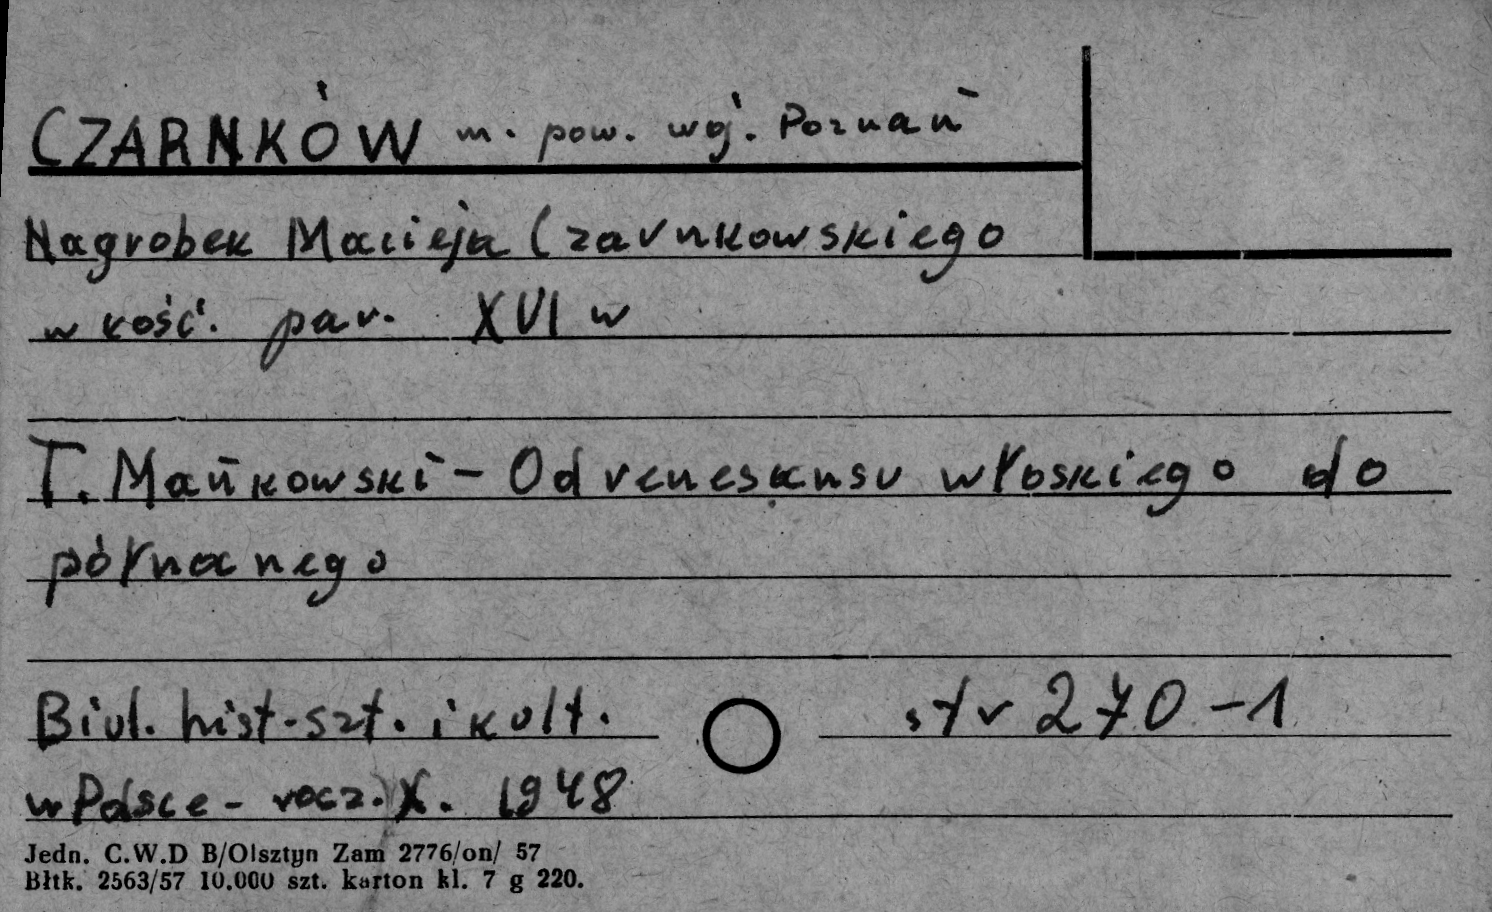 CZARNKÓW m. pow. woj. Poznań
Nagrobek Macieja Czarnkowskiego
w kość. par. XVI w
T. Mańkowski - Od renesansu włoskiego do
północnego
Biul. hist-szt. i kult. str 270-1
w Polsce - rocz. X. 1948
Jedn. C.W.D B/Olsztyn Zam 2776/on/ 57
Błtk. 2563/57 10.000 szt. karton kl. 7 g 220.